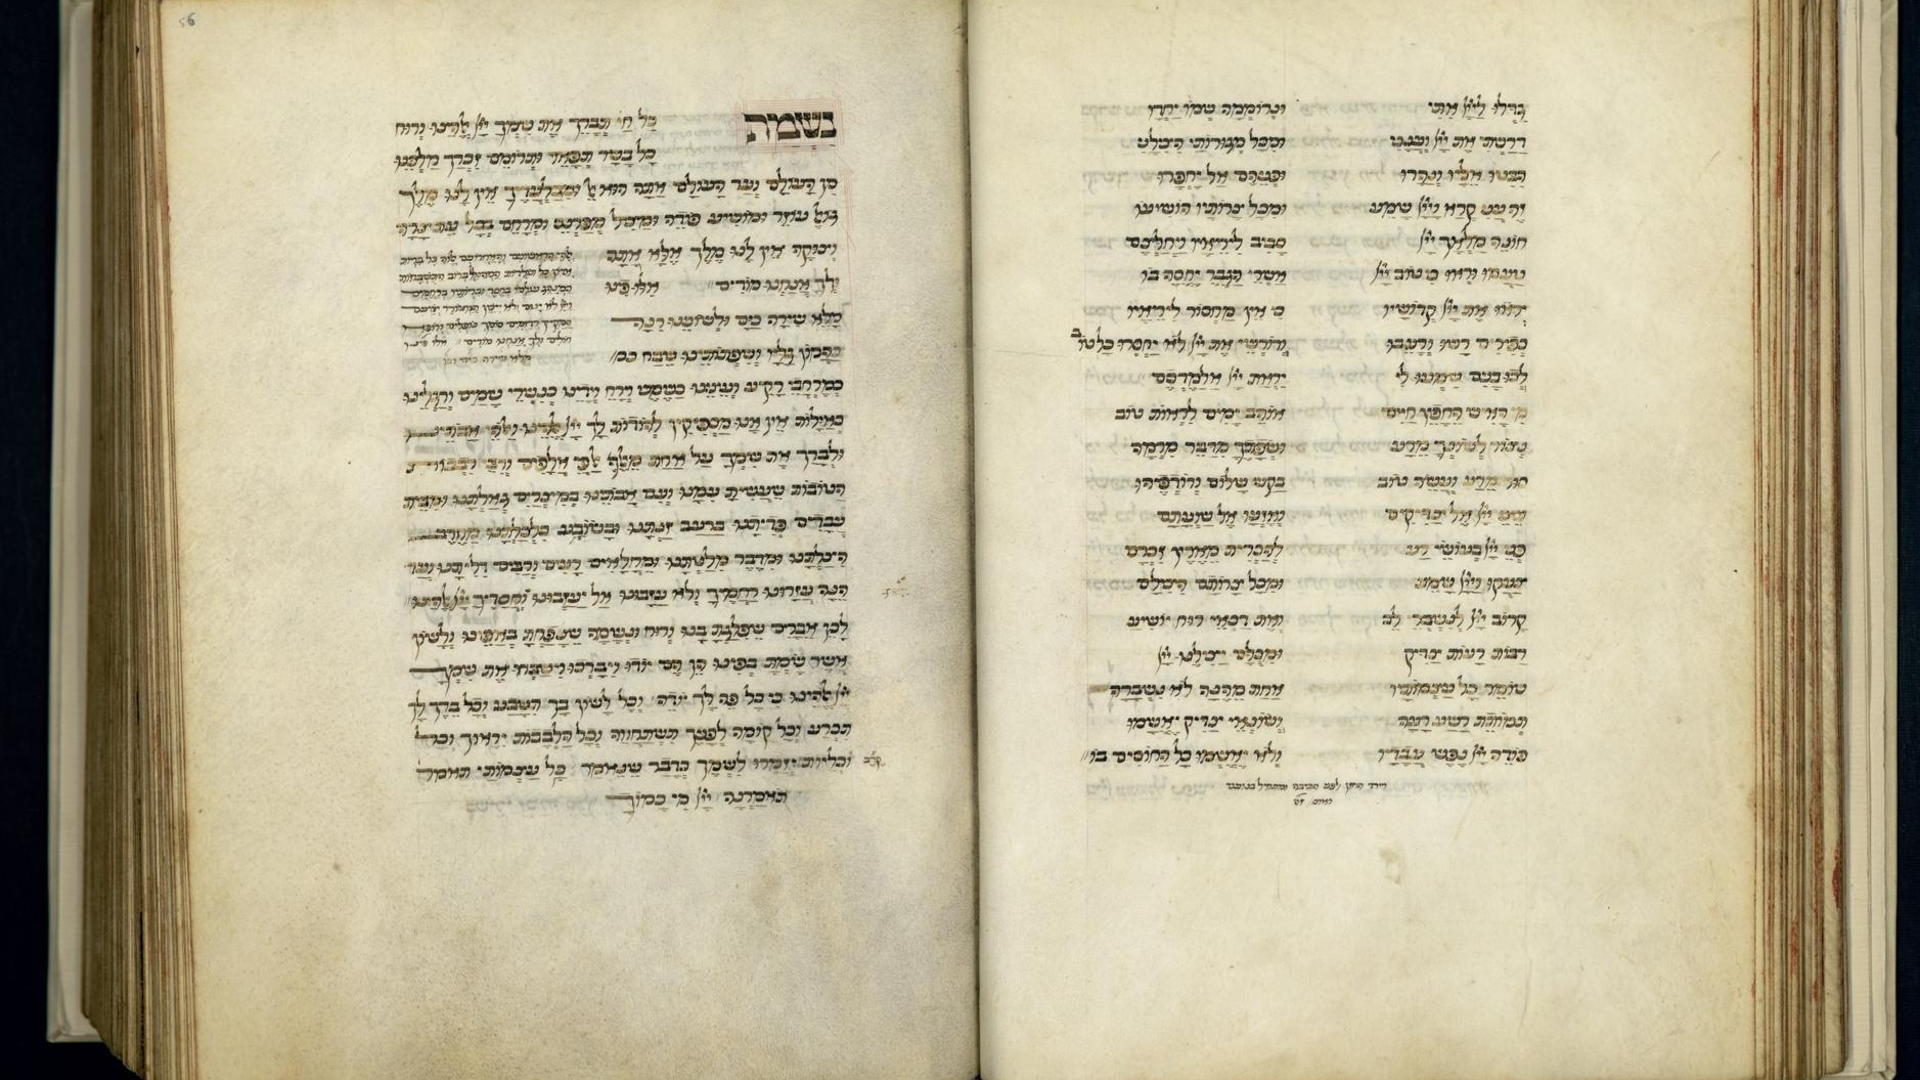 גדלו ליי אתי ונרוממה שמו יחדו
דרשתי את יי וענני ומכל מגורותי הצילני
הביטו אליו ונהרו ופניהם אל יחפרו
זה עני קרא ויי שמע ומכל צרותיו הושיעו
חונה מלאך יי סביב ליריאיו ויחלצם
טעמו וראו כי טוב יי אשרי הגבר יחסה בו
יראו את יי קדושיו כי אין מחסור ליריאיו
כפירים רשו ורעבו ודורשי את יי לא יחסרו כל טוב
לכו בנים שמעו לי יראת יי אלמדכם
מי האיש החפץ חיים אוהב ימים לראות טוב
נצור לשונך מרע ושפתיך מדבר מרמה
סור מרע ועשה טוב בקש שלום ורודפהו
עיני יי אל צדיקים ואזניו אל שועתם
פני יי בעושי רע להכרית מארץ זכרם
צעקו ויי שמע ומכל צרותם הצילם
קרוב יי לנשברי לב ואת דכאי רוח יושיע
רבות רעות צדיק ומכלם יצילנו יי
שומר כל עצמותיו אחת מהנה לא נשברה
תמותת רשע רעה ושונאי צדיק יאשמו
פודה יי נפש עבדיו ולא יאשמו כל החוסים בו
נשמת כל חי תברך את שמך יי אלהינו ורוח
כל בשר תפאר ותרומם זכרך מלכנו
מן העולם ועד העולם אתה הוא אל ומבלעדיך אין לנו מלך
גואל עוזר ומושיע פודה ומציל מפרנס ומרחם בכל עת צרה
וצוקה אין לנו מלך אלא אתה
ולך אנחנו מודים אלו פינו
מלא שירה כים ולשוננו רנה
כהמון גליו ושפתותינו שבח כמ
כמרחבי רקיע ועינינו כשמש וירח וידינו כנשרי שמים ורגלינו
כאילות אין אנו מספיקין להודות לך יי אלהינו ואלהי אבותינו
ולברך את שמך על אחת מאלף אלפי אלפים ורבי רבבות
הטובות שעשית עמנו ועם אבותינו ממצרים גאלתנו ומבית
עבדים פדיתנו ברעב זנתנו ובשובע כלכלתנו מחרב
הצלתנו ומדבר מלטתנו ומחלאים רעים ורבים דליתנו ועד
הנה עזרונו רחמיך ולא עזבונו אל יעזבונו חסדיך יי אלהינו
לכן אברים שפלגת בנו ורוח ונשמה שנפחת באפינו ולשון
אשר שמת בפינו הן הם יודו ויברכו וישבחו את שמך
יי אלהינו כי כל פה לך יודה וכל לשון בך תשבע וכל ברך לך
תכרע וכל קומה לפניך תשתחוה וכל הלבבות יראוך וכל
וכליות יזמרו לשמך כדבר שנאמר כל עצמותי תאמר
תאמרנה יי מי כמוך